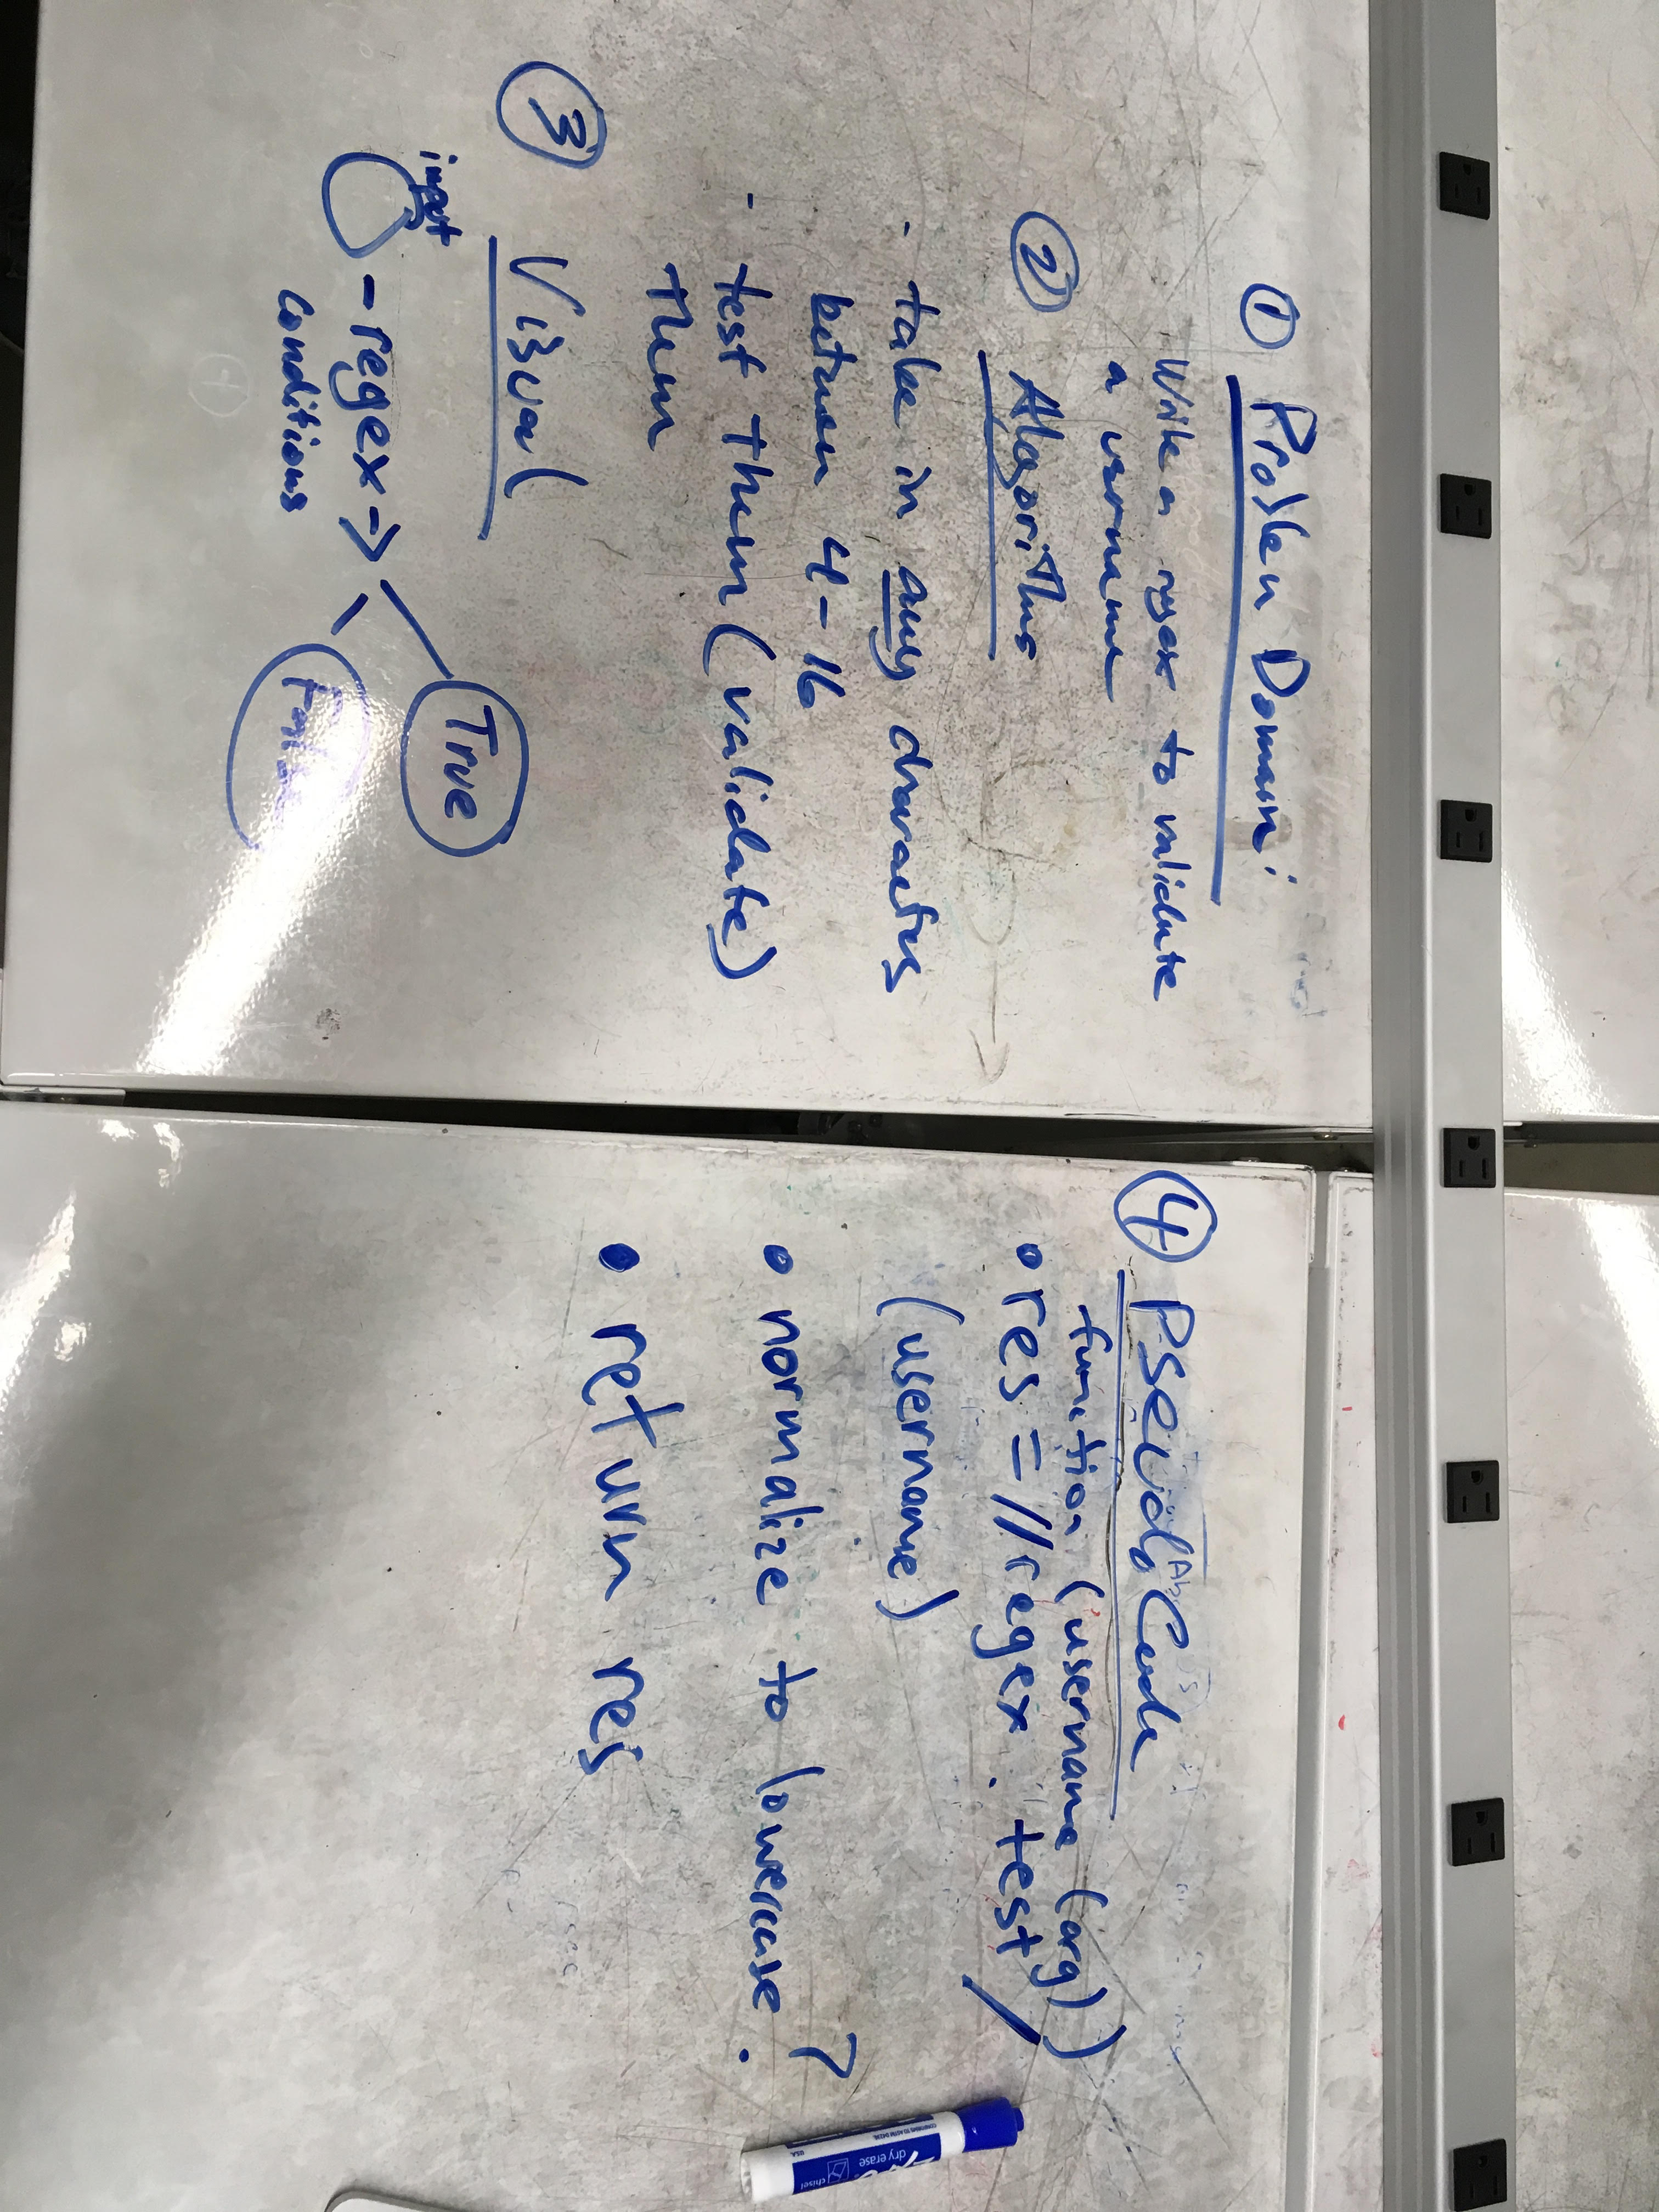 ① Problem Domain:
- Write a regex to validate
a username
② Algorithms
- take in any characters
between 4-16
- test them (validate)
them
③ Visual
input
- regex ->
conditions
True
False
④ Pseudo Code
function (username (arg))
• res = //regex . test /
(username)
• normalize to lowercase ?
• return res
dry erase
chisel